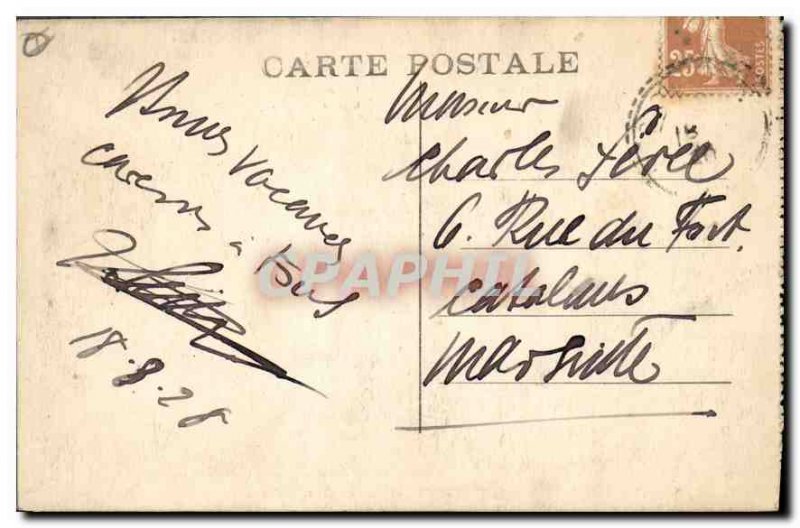 CARTE POSTALE
Bonnes Vacances
caresses à tous
18.8.28
Monsieur
Charles
6. Rue du Fort
Catalans
Marseille
25
POSTES
CPAPHIL